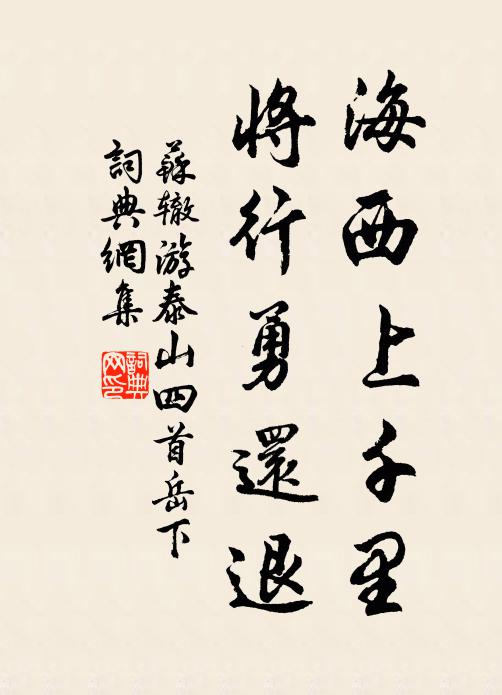 海西上千里
將行勇還退
蘇辙游泰山四首岳下
詞典網集
詞典网印